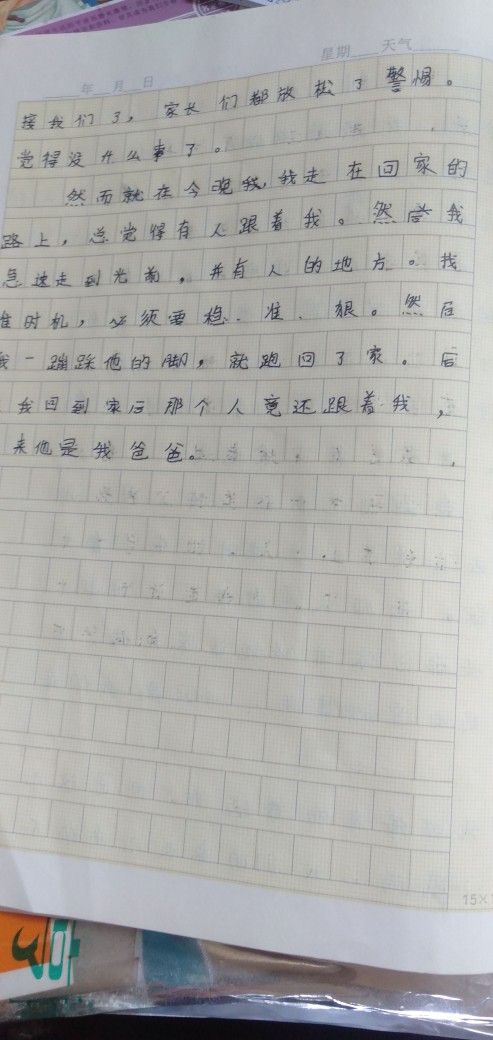 星期 天气
年 月 日
接我们了，家长们都放松了警惕。
觉得没什么事了。
然而就在今晚我，我走在回家的
路上，总觉得有人跟着我。然尝我
急速走到光前，并有人的地方。找
准时机，必须要稳、准、狠。然后
我一蹦跺他的脚，就跑回了家。后
我回到家后那个人竟还跟着我，
来他是我爸爸。
15×